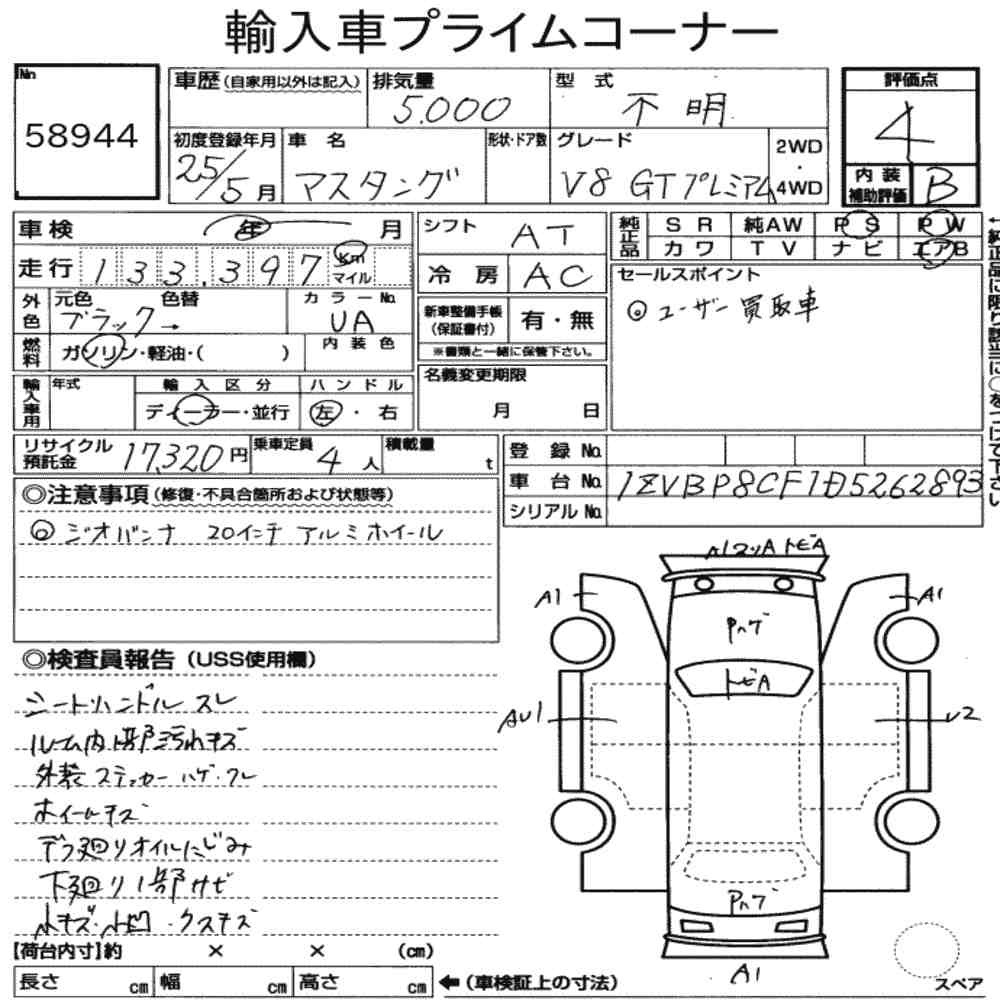 輸入車プライムコーナー
No
58944
車歴(自家用以外は記入)
排気量
5.000
型 式
不明
評価点
4
初度登録年月
25/5月
車 名
マスタング
形状・ドア数
グレード
V8 GTプレミアム
2WD
・
4WD
内装
補助評価
B
車検
年 月
走行
133,397
Km
マイル
外色
元色
色替
ブラック→
カラーNo.
UA
燃料
ガソリン・軽油・( )
内装色
輸入車用
年式
輸入区分
ディーラー・並行
ハンドル
左・右
シフト
AT
冷 房
AC
新車整備手帳
(保証書付)
有・無
※書類と一緒に保管下さい。
名義変更期限
月 日
純正品
SR
純AW
PS
PW
カワ
TV
ナビ
エアB
セールスポイント
◎ユーザー買取車
←純正品に限り該当に○をつけて下さい
リサイクル
預託金
17,320円
乗車定員
4人
積載量
t
登 録 No.
車 台 No.
1ZVBP8CF1D5262893
シリアルNo.
◎注意事項(修復・不具合箇所および状態等)
◎ジオバンナ 20インチ アルミホイール
◎検査員報告(USS使用欄)
シートハンドル スレ
ルーム内1部汚れキズ
外装ステッカーハゲ・ワレ
ホイールキズ
デフ廻りオイルにじみ
下廻り1部サビ
小キズ・小凹・クスキズ
A1ヌリA トビA
A1
A1
Pハゲ
トビA
AU1
U2
Pハゲ
A1
【荷台内寸】約 × × (cm)
長さ cm
幅 cm
高さ cm
←(車検証上の寸法)
スペア